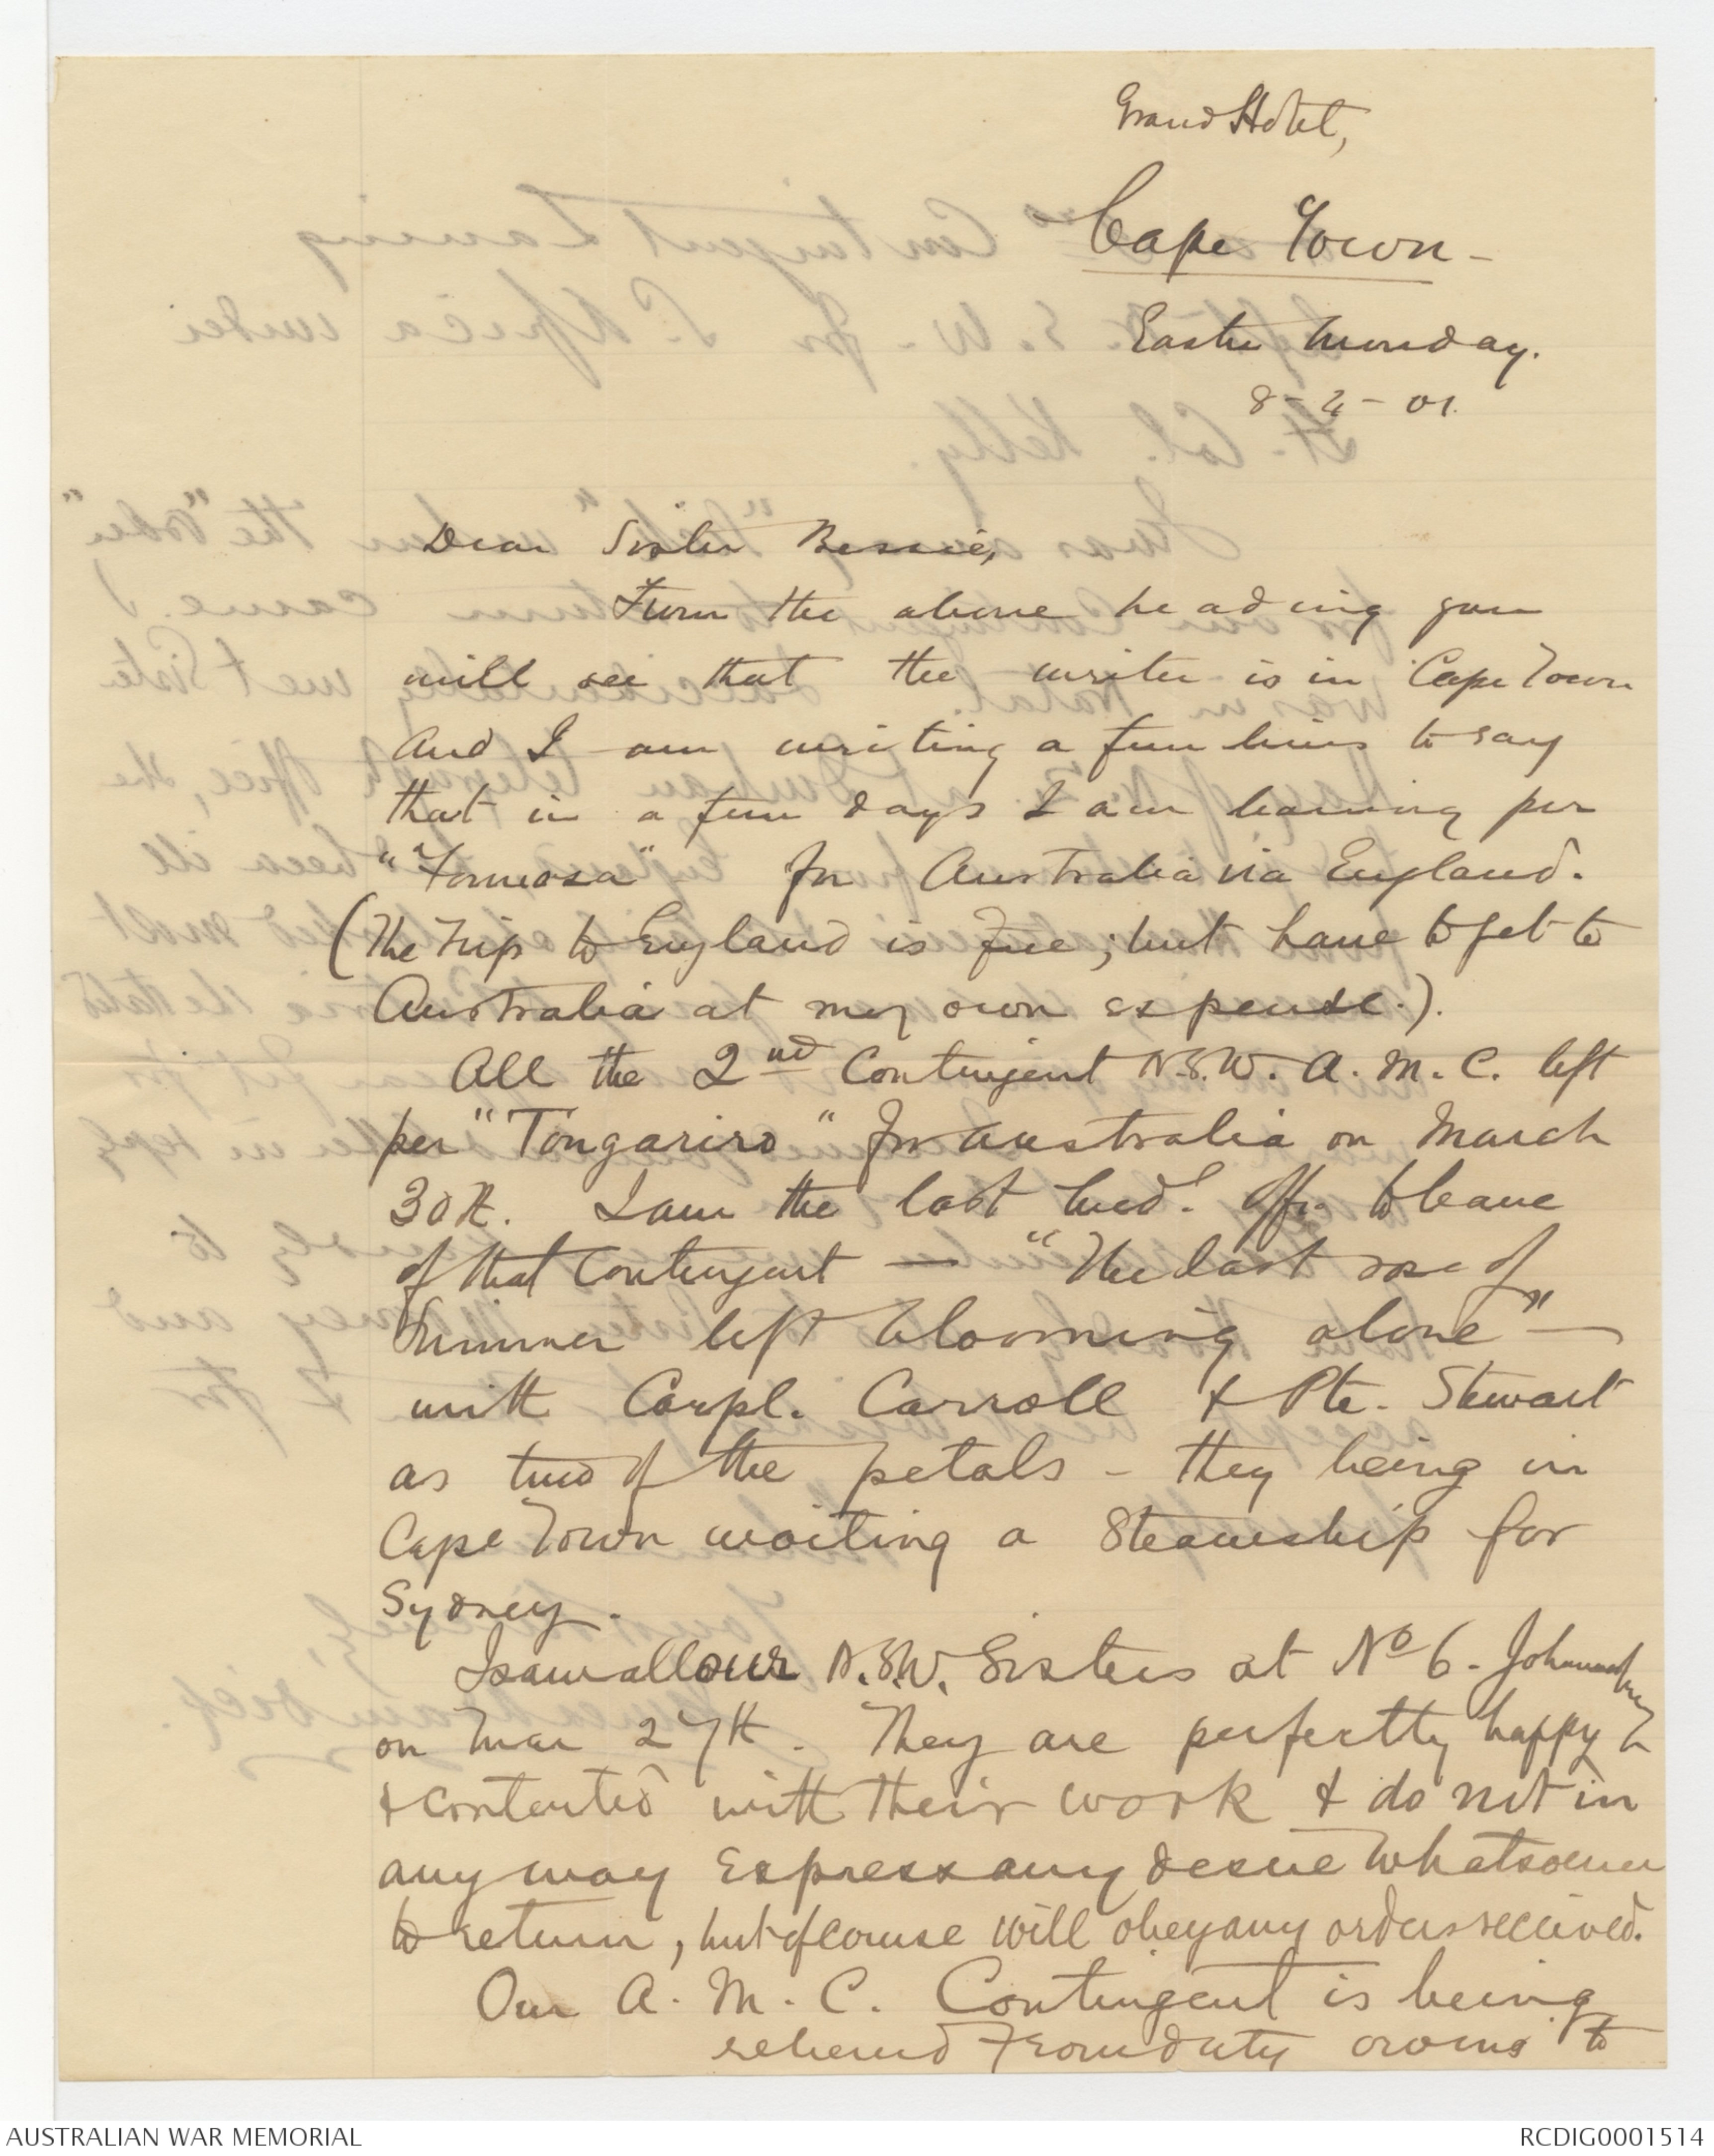 Grand Hotel,
Cape Town -
Easter Monday.
8 - 4 - 01.
Dear Sister Bessie,
From the above heading you
will see that the writer is in Cape Town
and I am writing a few lines to say
that in a few days I am leaving per
"Formosa" for Australia via England.
(The trip to England is free; but have to get to
Australia at my own expense.).
All the 2nd Contingent N.S.W. A. M. C. left
per "Tongariro" for Australia on March
30th. I am the last Med. Offr. to leave
of that Contingent — "The last rose of
Summer left blooming alone" —
with Corpl. Carroll & Pte. Stewart
as two of the petals - they being in
Cape Town waiting a Steamship for
Sydney.
I saw all our N.S.W. Sisters at No 6. Johannesburg
on Mar 27th. They are perfectly happy
& contented with their work & do not in
any way express any desire whatsoever
to return, but of course will obey any orders received.
Our A. M. C. Contingent is being
relieved from duty owing to
AUSTRALIAN WAR MEMORIAL
RCDIG0001514